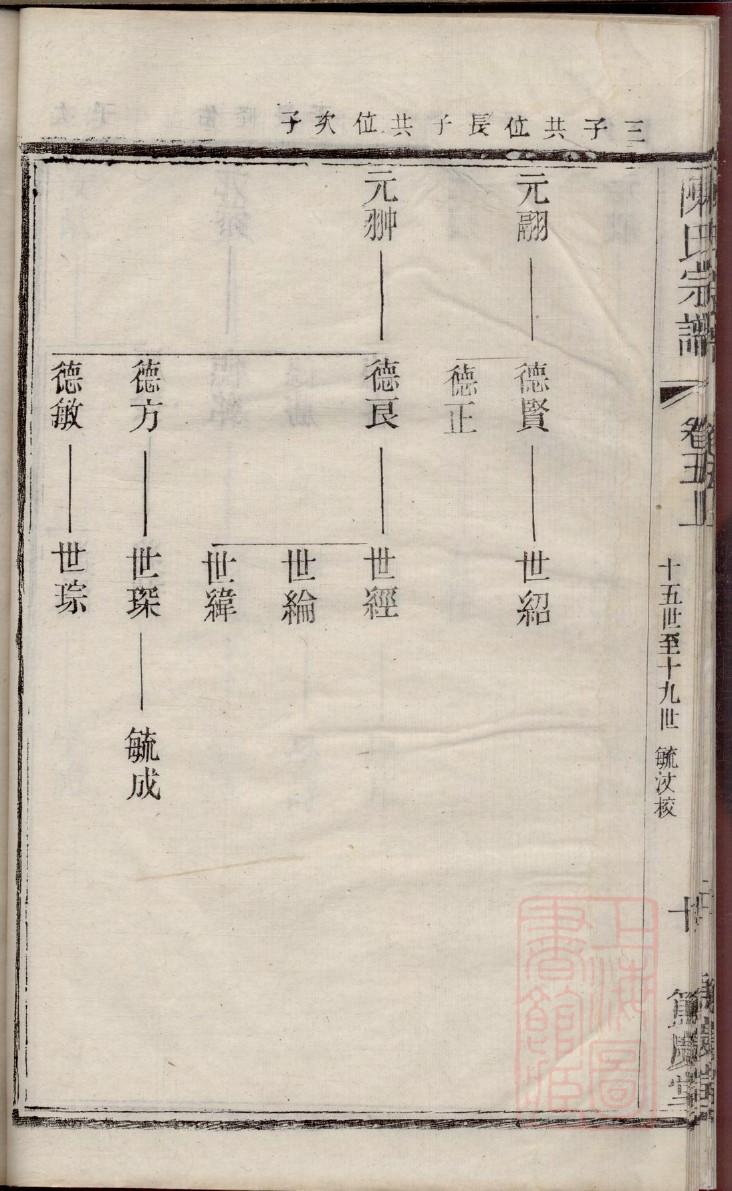 陳氏宗譜
卷五上
十五世至十九世 毓汶校
十
篤慶堂
三子共位長子共位次子
元翮
德賢
世紹
德正
元翀
德良
世經
世綸
世緯
德方
世琛
毓成
德敏
世琮
上海圖
書館藏